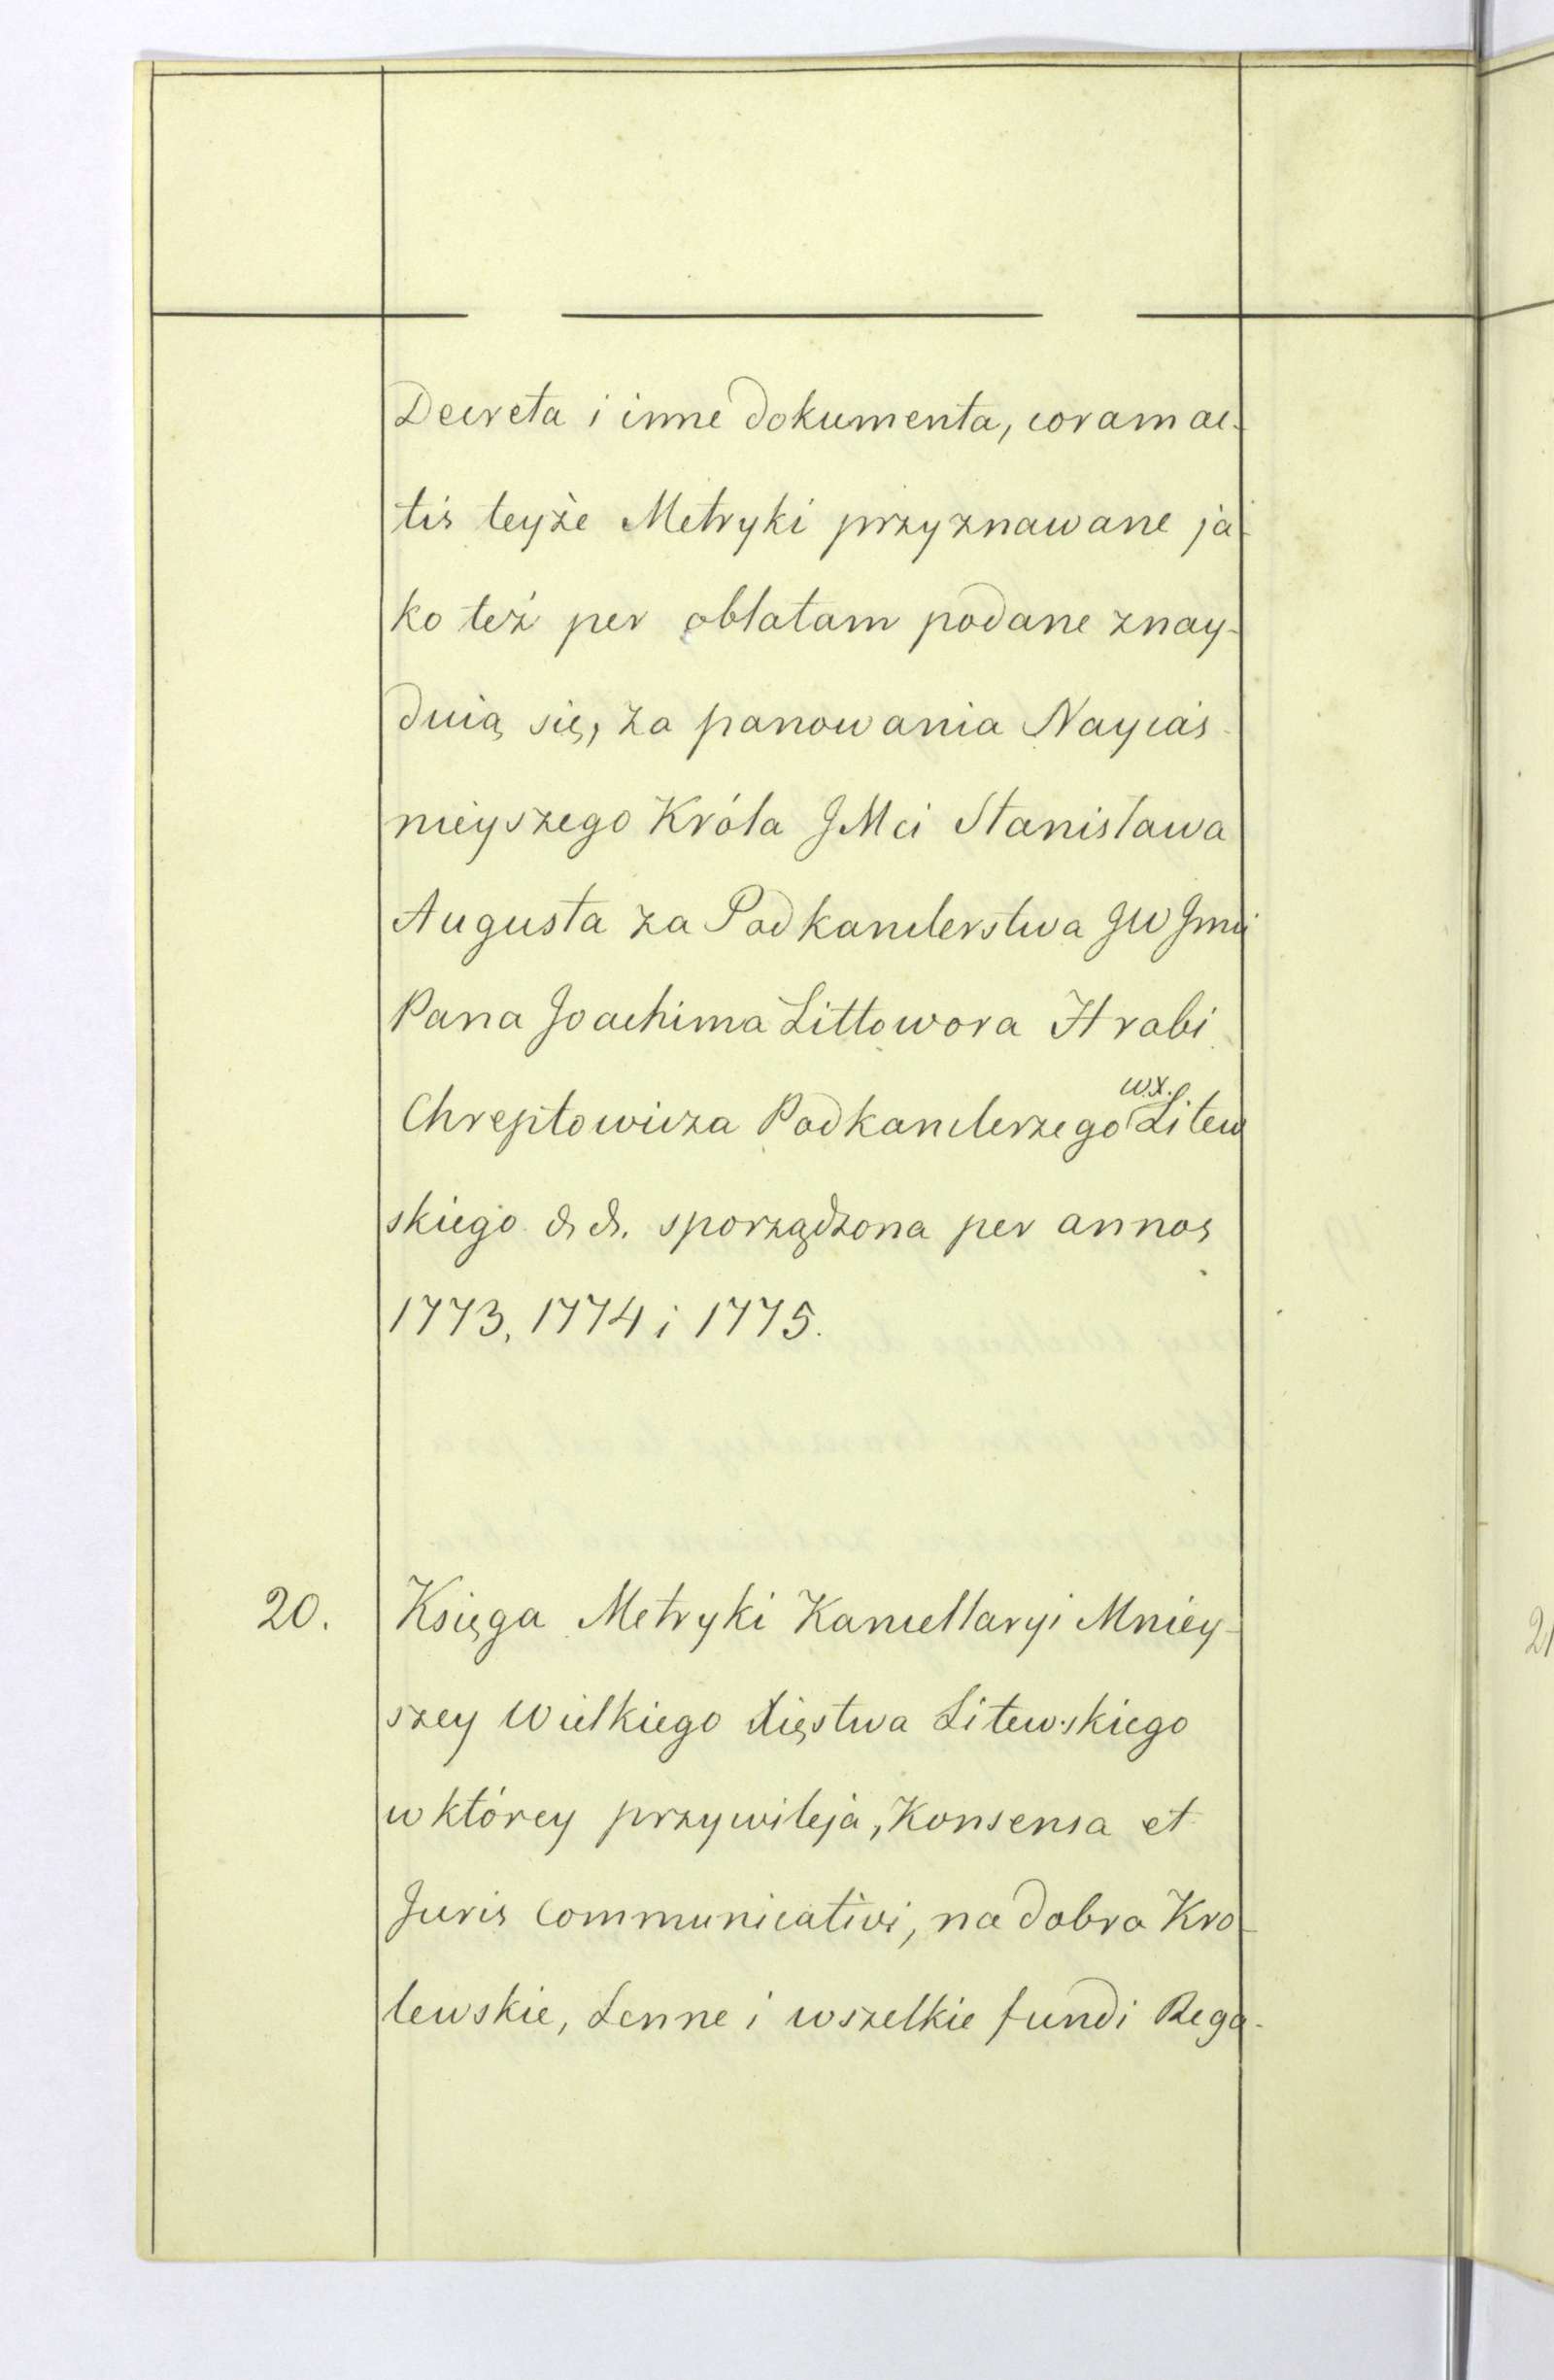 Decreta i inne dokumenta, coram ac-
tis teyże Metryki przyznawane ja-
ko też per oblatam podane znay-
duią się, za panowania Nayiaś-
nieyszego Króla JMci Stanisława
Augusta za Podkanclerstwa JW Jmci
Pana Joachima Littowora Hrabi
W.X.
Chreptowicza Podkanclerzego Litew
skiego &. &. sporządzona per annos
1773, 1774 i 1775.
20. Księga Metryki Kancellaryi Mniey-
szey Wielkiego Xięstwa Litewskiego
w którey przywileja, Konsensa et
Juris communicativi, na dobra Kro-
lewskie, Lenne i wszelkie fundi Rega-
21